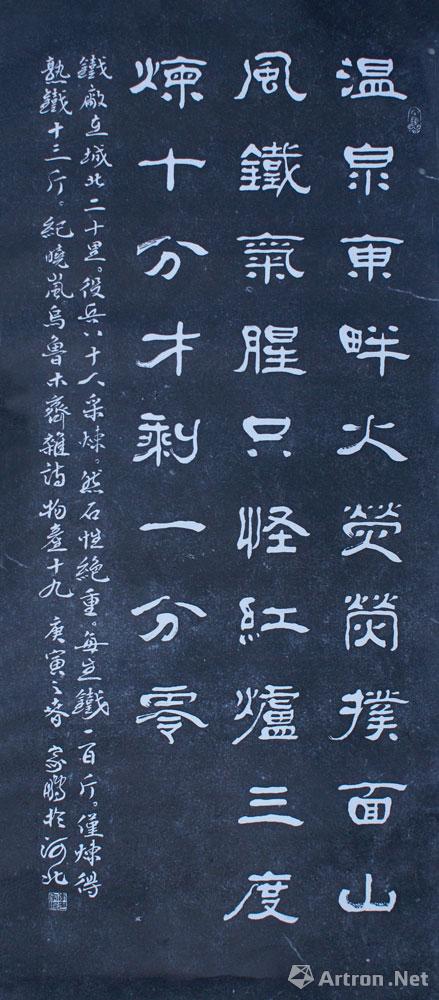 温泉東畔火熒熒撲面山
風鐵氣腥只怪紅爐三度
煉十分才剩一分零
鐵廠在城北二十里。役兵八十人采煉。然石性絕重。每生鐵一百斤。僅煉得
熟鐵十三斤。紀曉嵐烏魯木齊雜詩物產十九 庚寅之春 家鵬於河北
Artron.Net